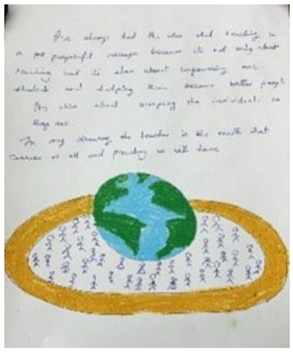 I've always had the idea that teaching is
a purposeful because it's not only about
teaching but it's also about empowering
student and helping them become better people
It's also about accepting the individuals as
they are.
In my drawing the teacher is the earth that
carries us all and providing us with